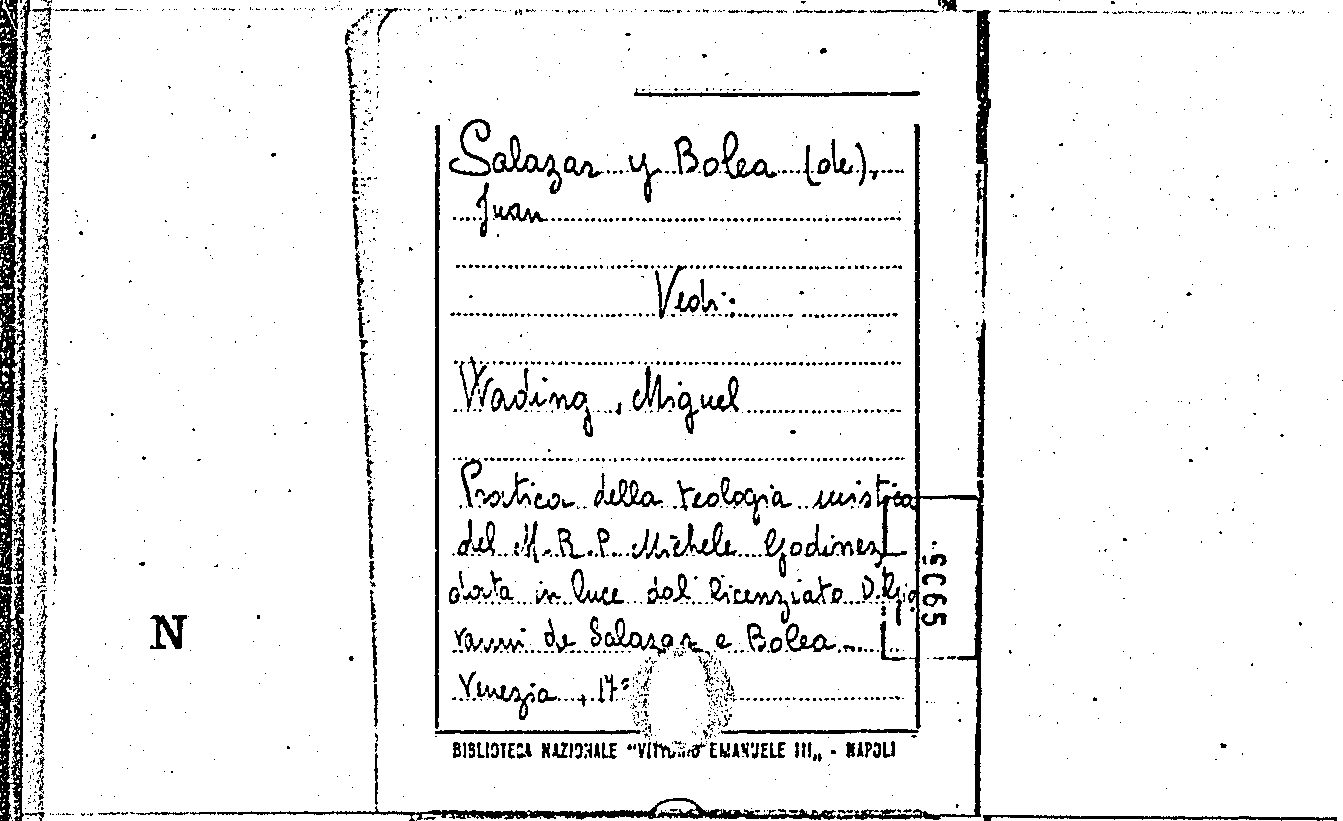 Salazar y Bolea (de),
Juan
Vedi:
Wading, Miguel
Pratica della teologia mistica
del M.R.P. Michele Godinez
data in luce dal licenziato D. Gio
vanni de Salazar e Bolea...
Venezia, 17
BIBLIOTECA NAZIONALE "VITTORIO EMANUELE III„ - NAPOLI
N